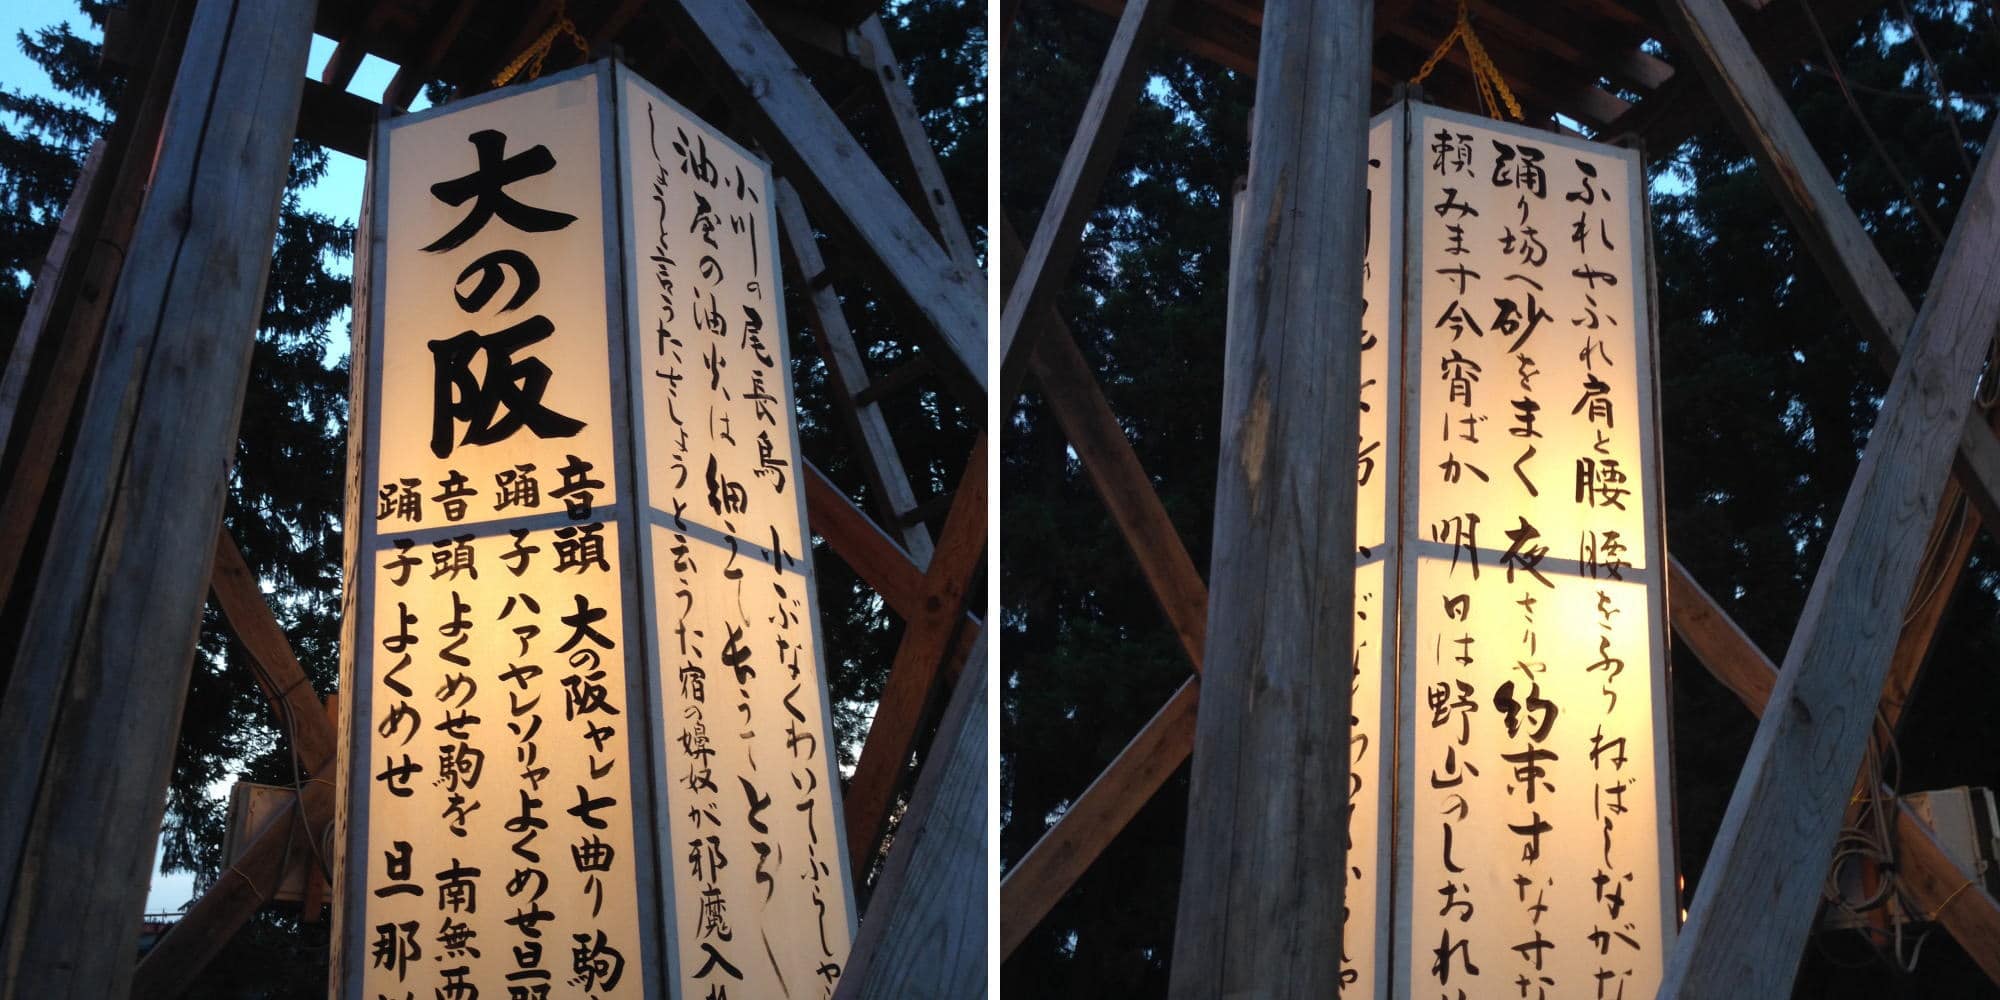 大の阪
音頭 大の阪ヤレ七曲り 駒
踊子 ハァヤレソリャよくめせ旦那
音頭 よくめせ駒を 南無西
踊子 よくめせ 旦那
小川の尾長鳥 小ぶなくわいてふらしゃ
油屋の油火は 細うて長うてとろ
しょうと言うたさ しょうと云うた宿の嬶奴が邪魔入れ
ふれやふれ肩と腰 腰をふらねばしながな
踊り場へ砂をまく 夜さりや約束すなすな
頼みます今宵ばか 明日は野山のしおれ